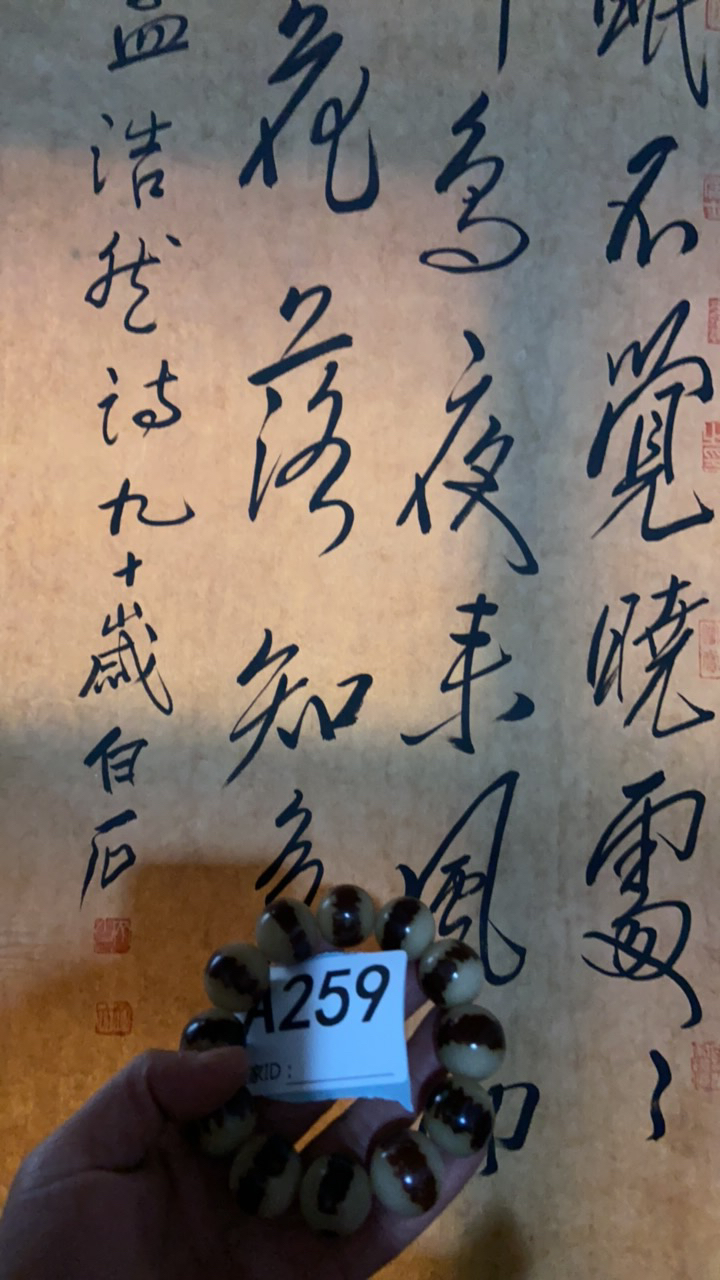 眠不覺曉處〻
鳥夜来風
花落知多
孟浩然詩九十歲白石
A259
家ID：